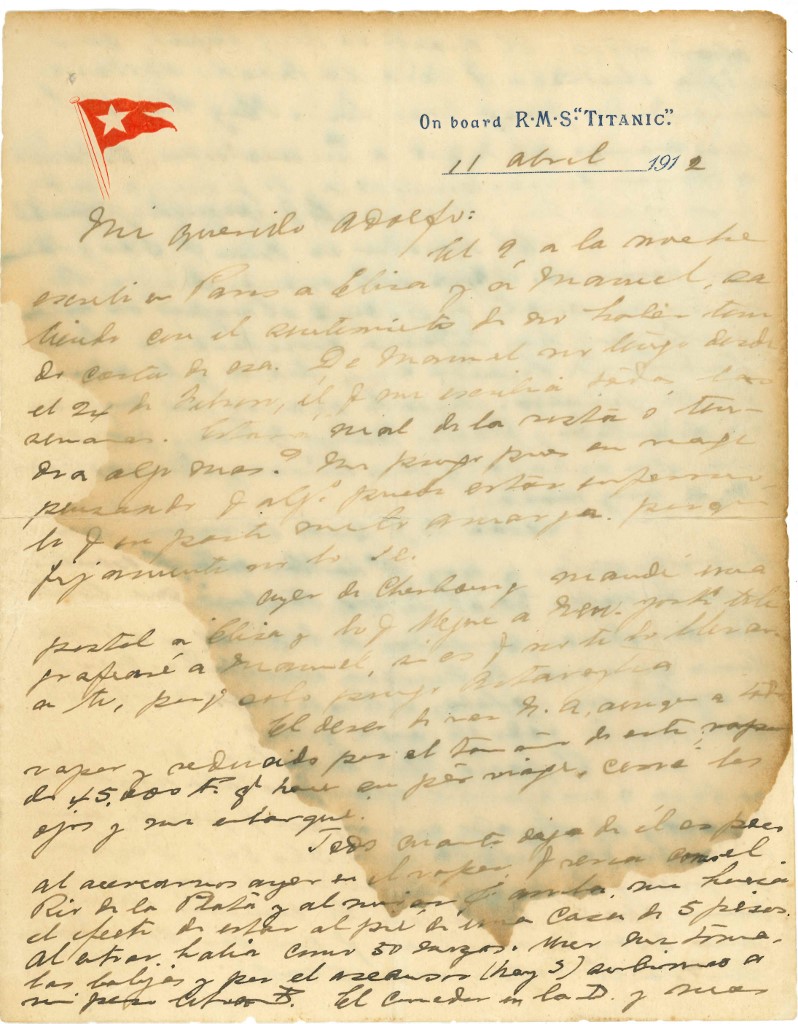 On board R·M·S· "TITANIC".
11 abril 1912
Mi querido Adolfo:
El 9, a la noche
escribí en Paris a Elisa y á Manuel, sa
liendo con el sentimiento de no haber teni
do carta de esa. De Manuel no tengo desde
el 24 de Febrero, él q me escribía todas las
semanas. Estará mal de la vista ó ten-
drá algo mas? Me pongo pues en viaje
pensando q algo pueda estar enfermo,
lo q en parte me amarga. porque
fijamente no lo se.
ayer de Cherbourg mandé una
postal a Elisa y lo q llegue a New York tele
grafearé a Manuel, si es q no te lo llevan
a ti, porq solo pongo
El deseo de ver N. A, amigo a todo
vapor y seducido por el tamaño de este vapor
de 45.000 tn. qe hace su pér viaje, cerré los
ojos y me embarqué.
Todo cuanto diga de él es poco
al acercarnos ayer en el vapor q seria como el
Rio de la Plata y al mirar p arriba, me hacía
el efecto de estar al pié de una casa de 5 pisos.
Al entrar había como 50 mozos. Uno me toma
los balijas y por el ascensor (hay 3) subimos a
mi piso letra B. El comedor en la D. y mas